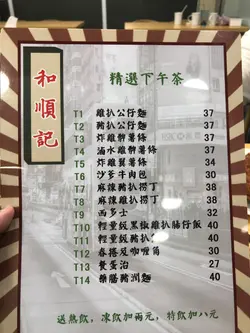 和順記
精選下午茶
T1 雞扒公仔麵 37
T2 豬扒公仔麵 37
T3 炸雞髀薯條 37
T4 滷水雞髀薯條 37
T5 炸雞翼薯條 34
T6 沙爹牛肉包 30
T7 麻辣豬扒撈丁 38
T8 麻辣雞扒撈丁 38
T9 西多士 30
T10 輕量版黑椒雞扒腸仔飯 40
T11 輕量版豬扒 40
T12 春捲及咖喱角 30
T13 餐蛋治 27
T14 藥膳豬潤麵 40
送熱飲，凍飲加兩元，特飲加八元